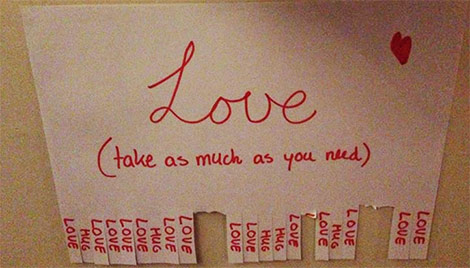 Love
(take as much as you need)
LOVE
HUG
LOVE
LOVE
LOVE
LOVE
HUG
LOVE
LOVE
LOVE
LOVE
HUG
HUG
LOVE
LOVE
HUG
LOVE
LOVE
LOVE